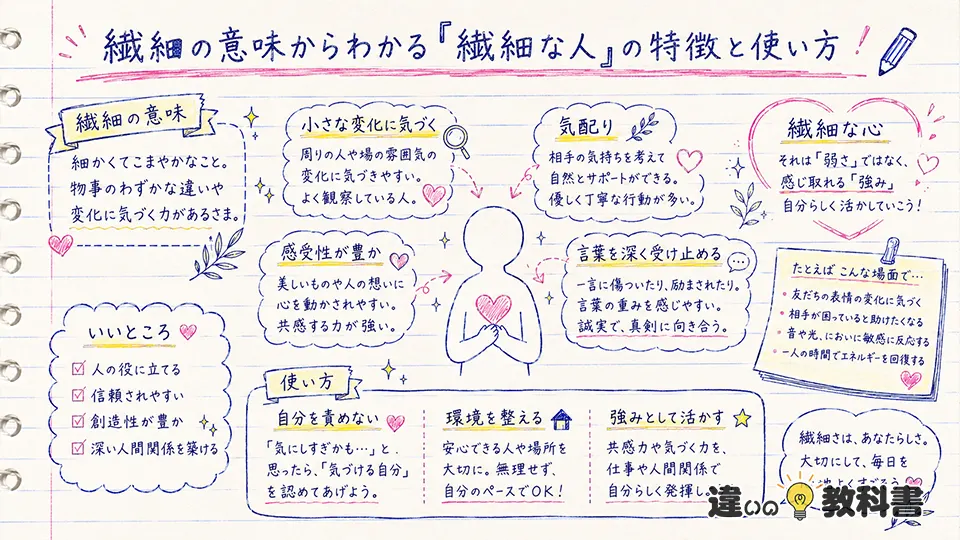 繊細の意味からわかる『繊細な人』の特徴と使い方
繊細の意味
細かくてこまやかなこと。
物事のわずかな違いや
変化に気づく力があるさま。
小さな変化に気づく
周りの人や場の雰囲気の
変化に気づきやすい。
よく観察している人。
気配り
相手の気持ちを考えて
自然とサポートができる。
優しく丁寧な行動が多い。
繊細な心
それは「弱さ」ではなく、
感じ取れる「強み」
自分らしく活かしていこう!
感受性が豊か
美しいものや人の想いに
心を動かされやすい。
共感する力が強い。
言葉を深く受け止める
一言に傷ついたり、励まされたり。
言葉の重みを感じやすい。
誠実で、真剣に向き合う。
たとえば こんな場面で…
・友だちの表情の変化に気づく
・相手が困っていると助けたくなる
・音や光、においに敏感に反応する
・一人の時間でエネルギーを回復する
いいところ
人の役に立てる
信頼されやすい
創造性が豊か
深い人間関係を築ける
使い方
自分を責めない
「気にしすぎかも…」と
思ったら、「気づける自分」
を認めてあげよう。
環境を整える
安心できる人や場所を
大切に。無理せず、
自分のペースでOK!
強みとして活かす
共感力や気づく力を、
仕事や人間関係で
自分らしく発揮し
繊細さは、あなたらしさ。
大切にして、毎日を
違いの教科書